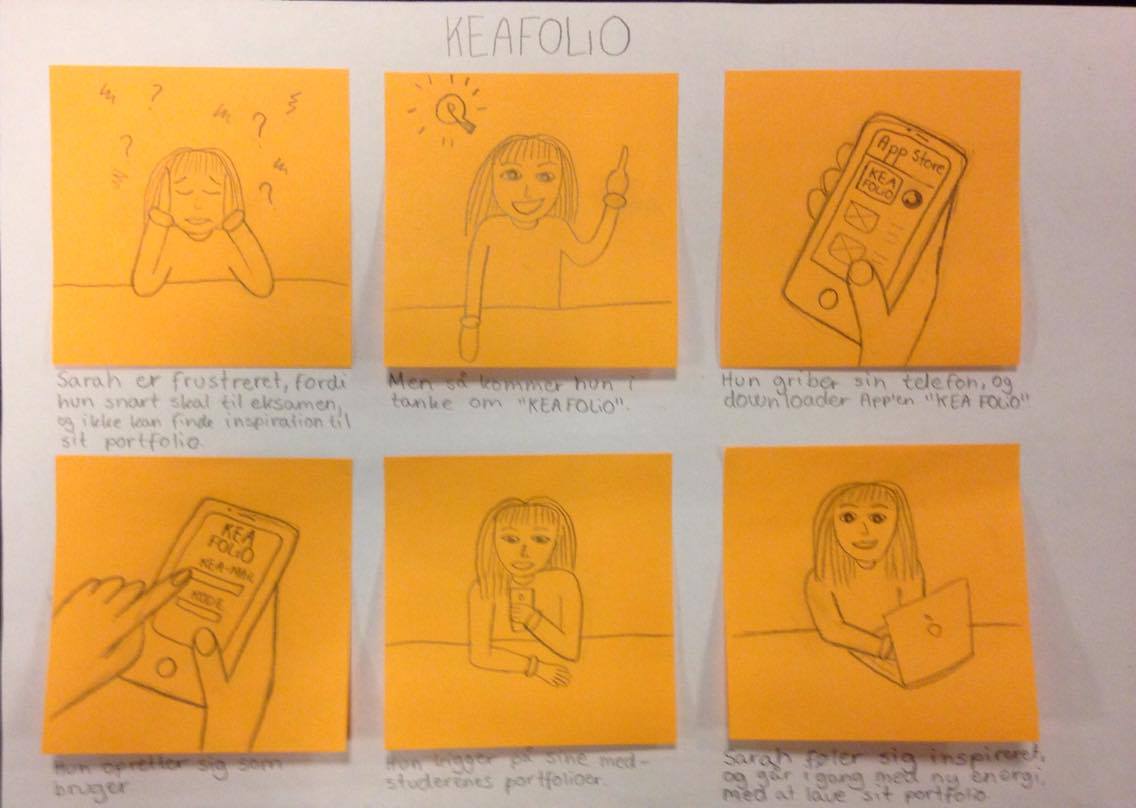 KEAFOLiO
? ? ? ? ?
Sarah er frustreret, fordi
hun snart skal til eksamen,
og ikke kan finde inspiration til
sit portfolio.
Men så kommer hun i
tanke om "KEAFOLiO".
App Store
KEA
FOLiO
Hun griber sin telefon, og
downloader App'en "KEA FOLiO"
KEA
FOLiO
KEA-MAIL
KODE
Hun opretter sig som
bruger
Hun kigger på sine med-
studerenes portfolioer.
Sarah føler sig inspireret,
og går igang med ny energi,
med at lave sit portfolio.